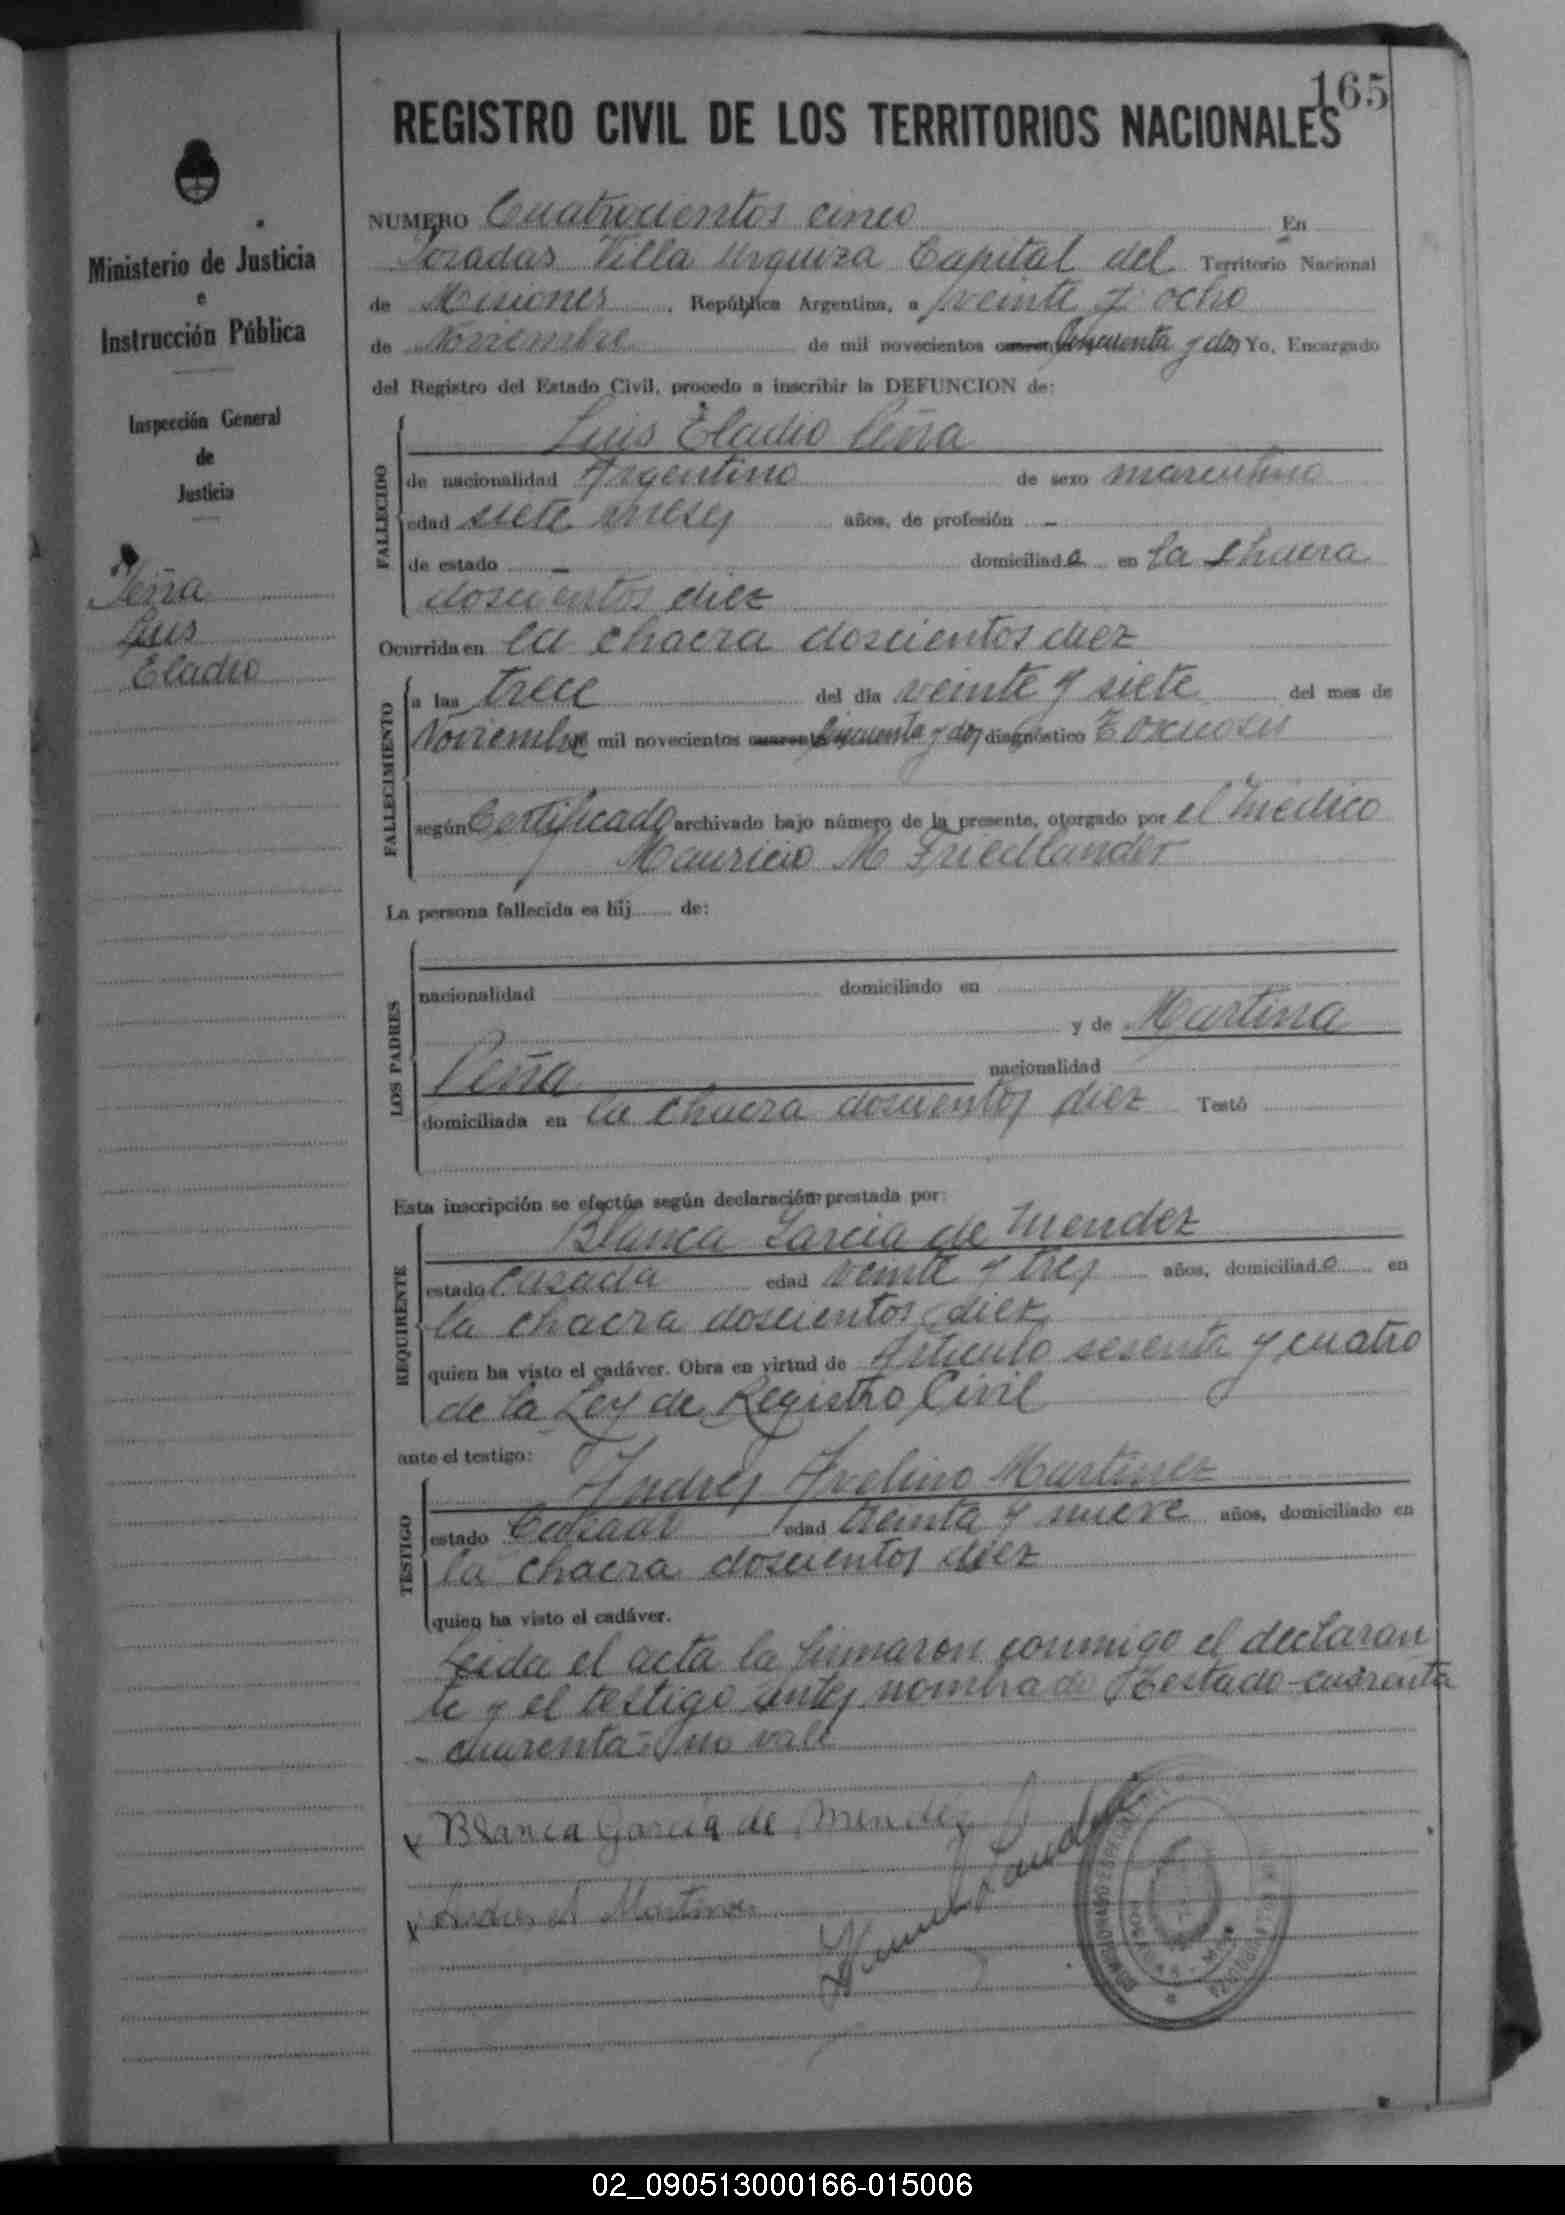 165
REGISTRO CIVIL DE LOS TERRITORIOS NACIONALES
Ministerio de Justicia
e
Instrucción Pública
Inspección General
de
Justicia
Peña
Luis
Eladio
NUMERO Cuatrocientos cinco En
Posadas Villa Urquiza Capital del Territorio Nacional
de Misiones, República Argentina, a veinte y ocho
de Noviembre de mil novecientos cuarenta cincuenta y dos Yo, Encargado
del Registro del Estado Civil, procedo a inscribir la DEFUNCION de:
FALLECIDO
Luis Eladio Peña
de nacionalidad Argentino de sexo masculino
edad siete meses años, de profesión -
de estado - domiciliado en la chacra
doscientos diez
Ocurrida en la chacra doscientos diez
FALLECIMIENTO
a las trece del día veinte y siete del mes de
Noviembre mil novecientos cuarenta cincuenta y dos diagnóstico Toxicosis
según Certificado archivado bajo número de la presente, otorgado por el médico
Mauricio M Friedlander
La persona fallecida es hij de:
LOS PADRES
nacionalidad domiciliado en
y de Martina
Peña nacionalidad
domiciliada en la chacra doscientos diez Testó
Esta inscripción se efectúa según declaración prestada por:
REQUIRENTE
Blanca Garcia de Mendez
estado casada edad veinte y tres años, domiciliada en
la chacra doscientos diez
quien ha visto el cadáver. Obra en virtud de Artículo sesenta y cuatro
de la Ley de Registro Civil
ante el testigo:
TESTIGO
Andres Avelino Martinez
estado Casado edad treinta y nueve años, domiciliado en
la chacra doscientos diez
quien ha visto el cadáver.
Leida el acta la firmaron conmigo el declaran
te y el testigo antes nombrado Testado-cuarenta
- cuarenta - no vale
x Blanca Garcia de Mendez
x Andres A Martinez
02_090513000166-015006